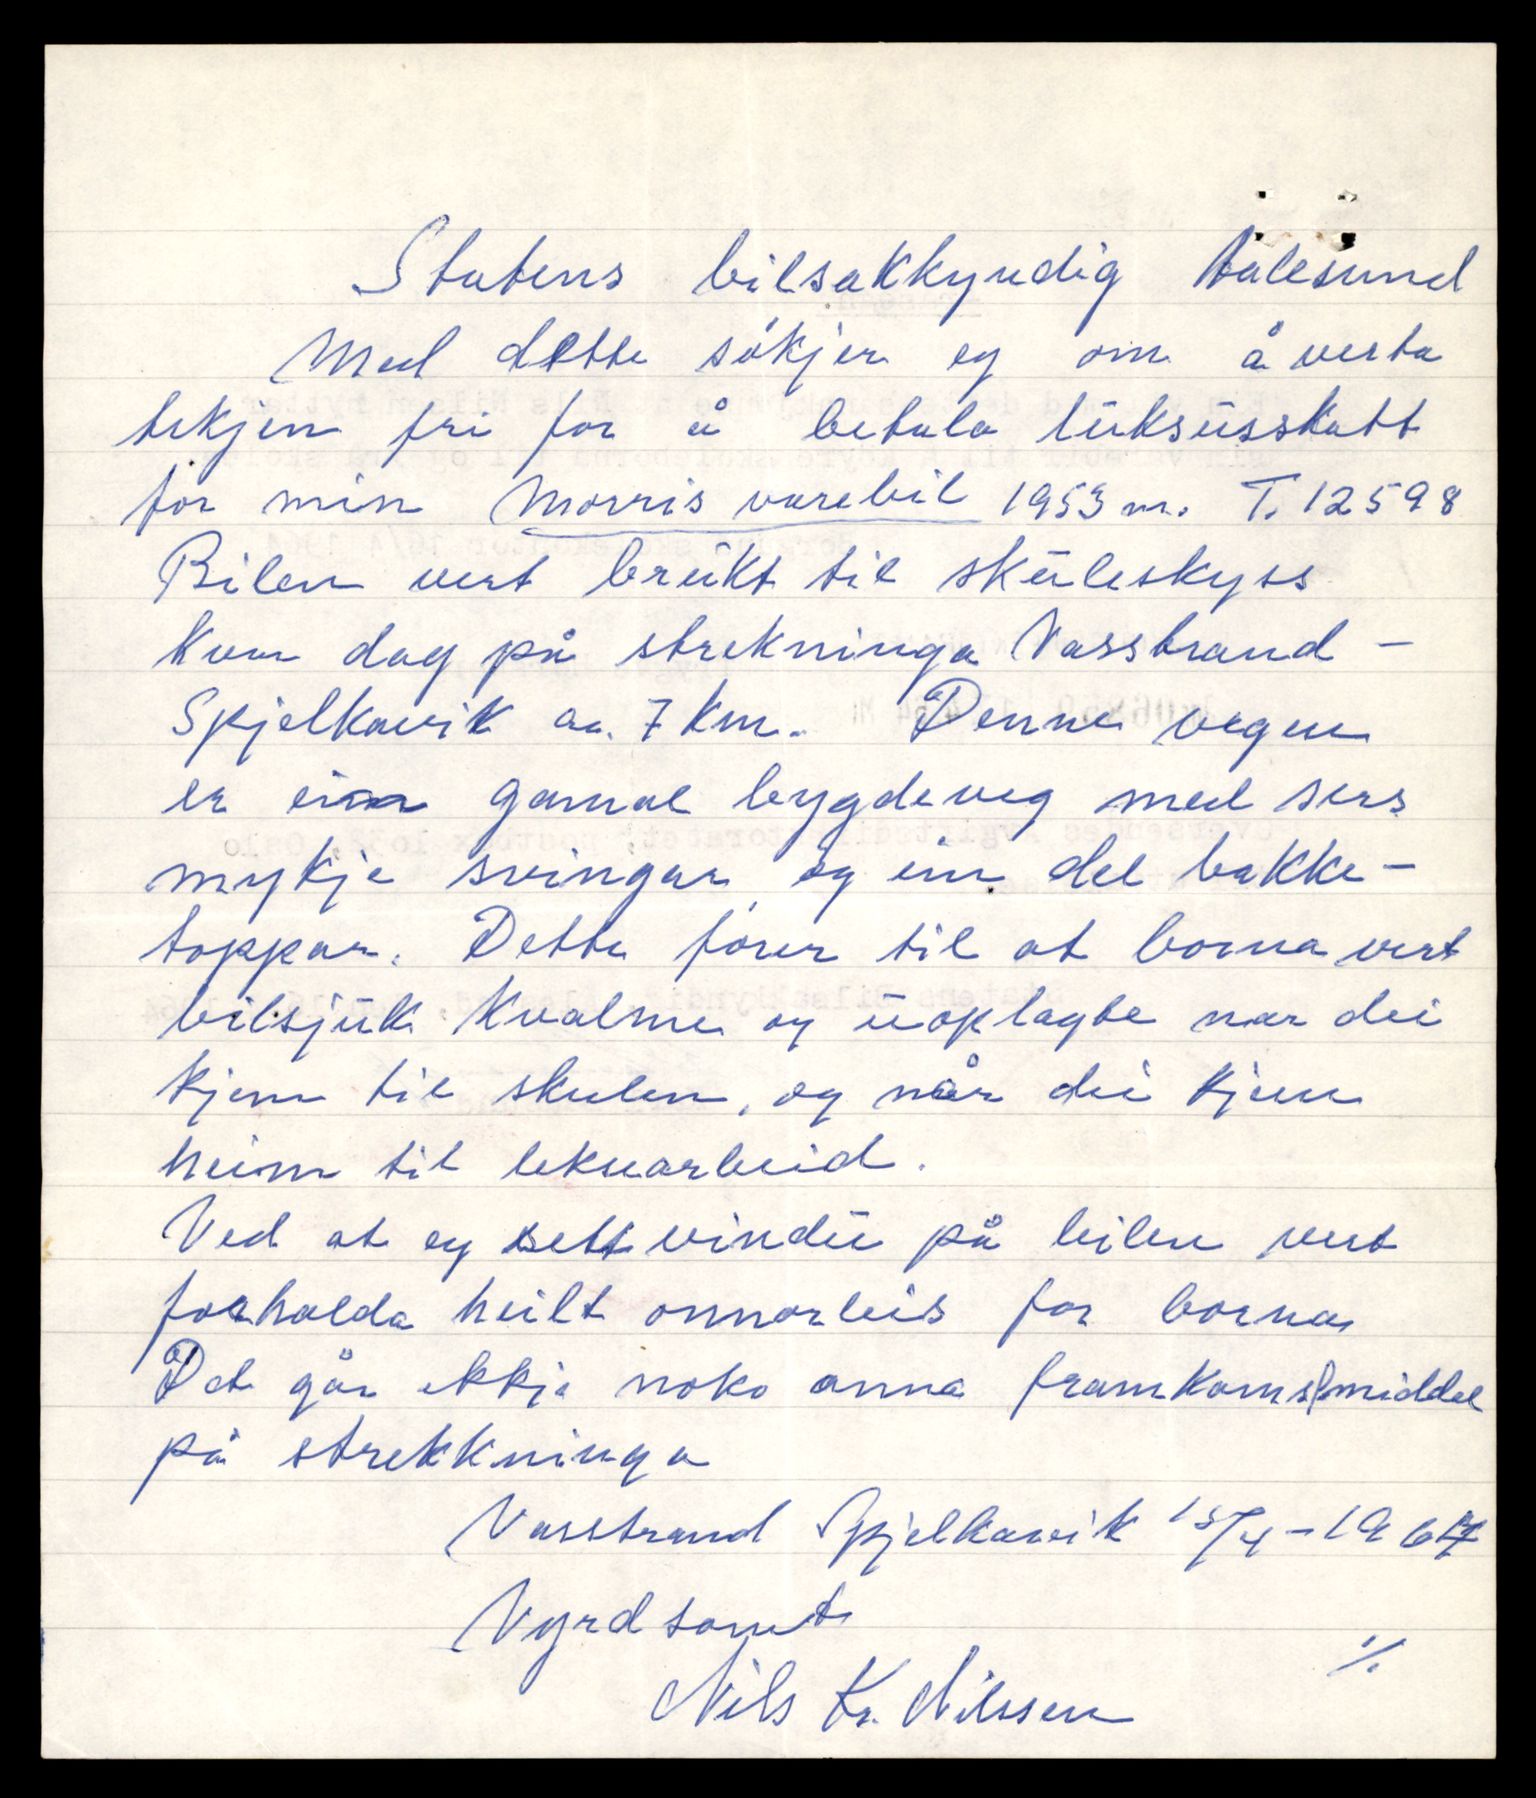 Statens bilsakkyndig Aalesund
Med dette søkjer eg om å verta
tekjen fri for å betala luksusskatt
for min Morris varebil 1953 m. T. 12598
Bilen vert brukt til skuleskyss
kver dag på strekninga Vasstrand -
Spjelkavik ca. 7 km. Denne vegen
er ein gamal bygdeveg med sers
mykje svingar og ein del bakke-
toppar. Dette fører til at borna vert
bilsjuk kvalme og uoplagte nar dei
kjem til skulen, og når dei kjem
heim til leksearbeid.
Ved at eg sett vindu på bilen vert
forholda heilt annarleis for borna
Det går ikkje noko anna framkomstmiddel
på strekkninga
Vasstrand Spjelkavik 15/4-1964
Vyrdsamt
Nils Kr. Nilssen